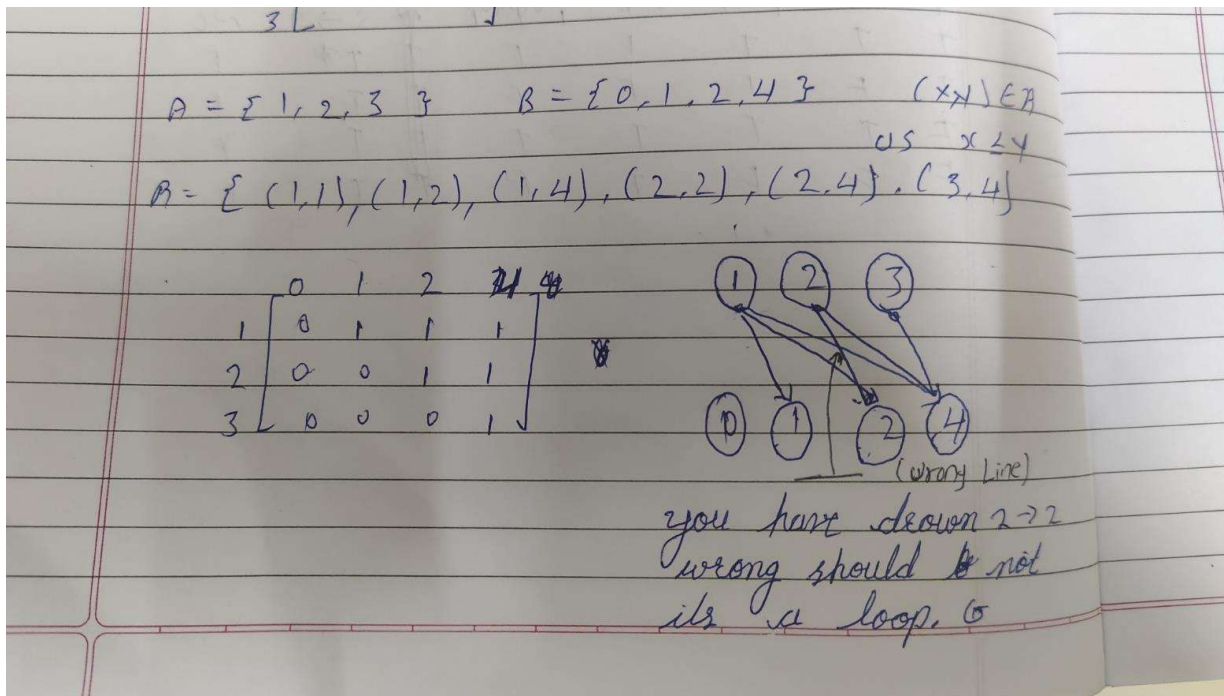 3
A = { 1, 2, 3 } B = { 0, 1, 2, 4 } (x,y) ∈ A
as x ≤ y
R = { (1,1), (1,2), (1,4), (2,2), (2,4), (3,4}
0 1 2 4
1 0 1 1 1
2 0 0 1 1
3 0 0 0 1
1 2 3
0 1 2 4
(wrong Line)
you have drown 2→2
wrong should not
its a loop.